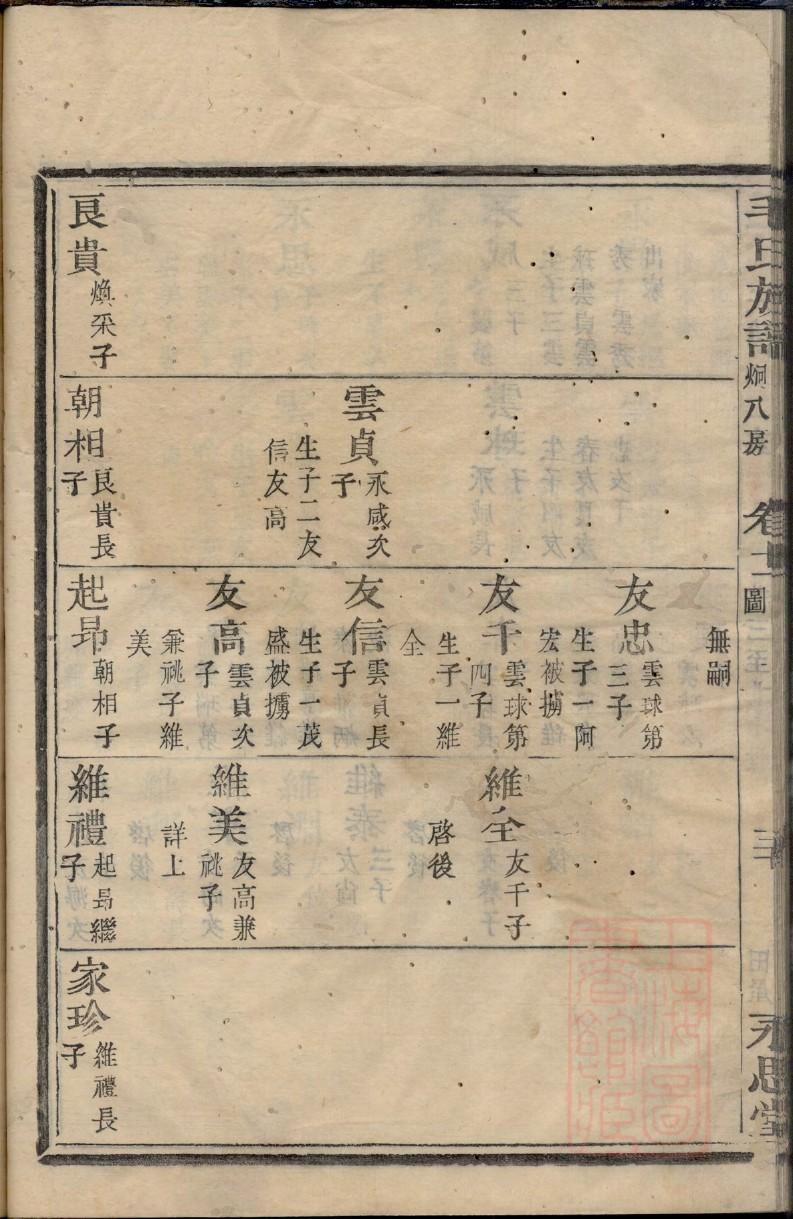 毛氏族譜
炯八房
卷十一
圖
三
永思堂
良貴
煥采子
雲貞
永咸次
子
生子二友
信友高
朝相
良貴長
子
無嗣
友忠
雲球第
三子
生子一阿
宏被擄
友千
雲球第
四子
生子一維
全
友信
雲貞長
子
生子一茂
盛被擄
友高
雲貞次
子
兼祧子維
美
起昂
朝相子
維全
友千子
啓後
維美
友高兼
祧子
詳上
維禮
起昂繼
子
家珍
維禮長
子